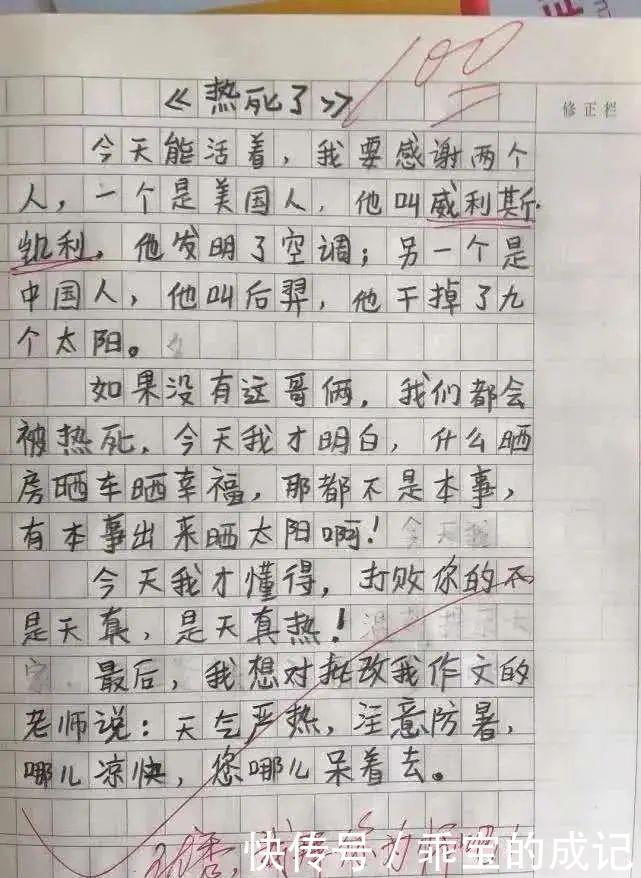 100
修正栏
《热死了》
今天能活着，我要感谢两个
人，一个是美国人，他叫威利斯·
凯利，他发明了空调；另一个是
中国人，他叫后羿，他干掉了九
个太阳。
如果没有这哥俩，我们都会
被热死，今天我才明白，什么晒
房晒车晒幸福，那都不是本事，
有本事出来晒太阳啊！
今天我才懂得，打败你的不
是天真，是天真热！
最后，我想对批改我作文的
老师说：天气严热，注意防暑，
哪儿凉快，您哪儿呆着去。
快传号/乖宝的成记